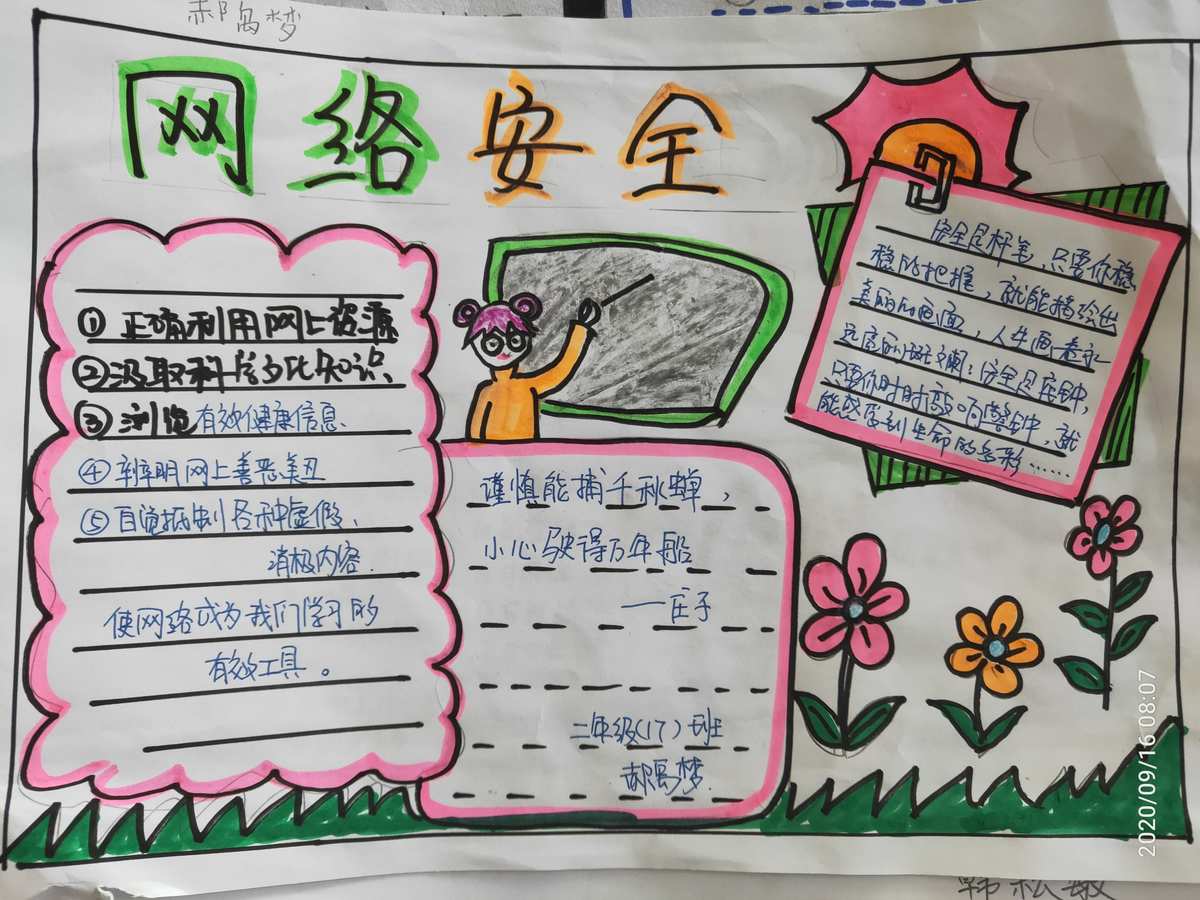 郝禹梦
网络安全
①正确利用网上资源
②汲取科学文化知识
③浏览有效健康信息、
④辩明网上善恶美丑
⑤自觉抵制各种虚假、
消极内容.
使网络成为我们学习的
有效工具。
谨慎能捕千秋蝉，
小心驶得万年船
——庄子
二年级(17)班
郝禹梦.
安全是杆笔，只要你稳
稳的把握，就能描绘出
美丽的画面，人生画卷永
远亮丽斑斓；安全是座钟，
只要你时时敲响警钟，就
能欣赏到生命的多彩……
2020/09/16 08:07
韩松